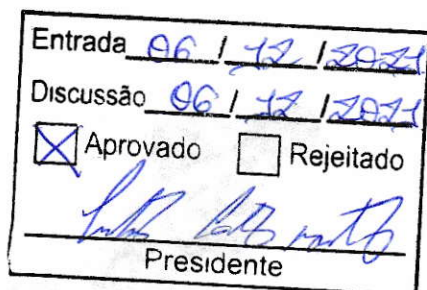 Entrada 06 / 12 / 2021
Discussão 06 / 12 / 2021
Aprovado Rejeitado
Presidente